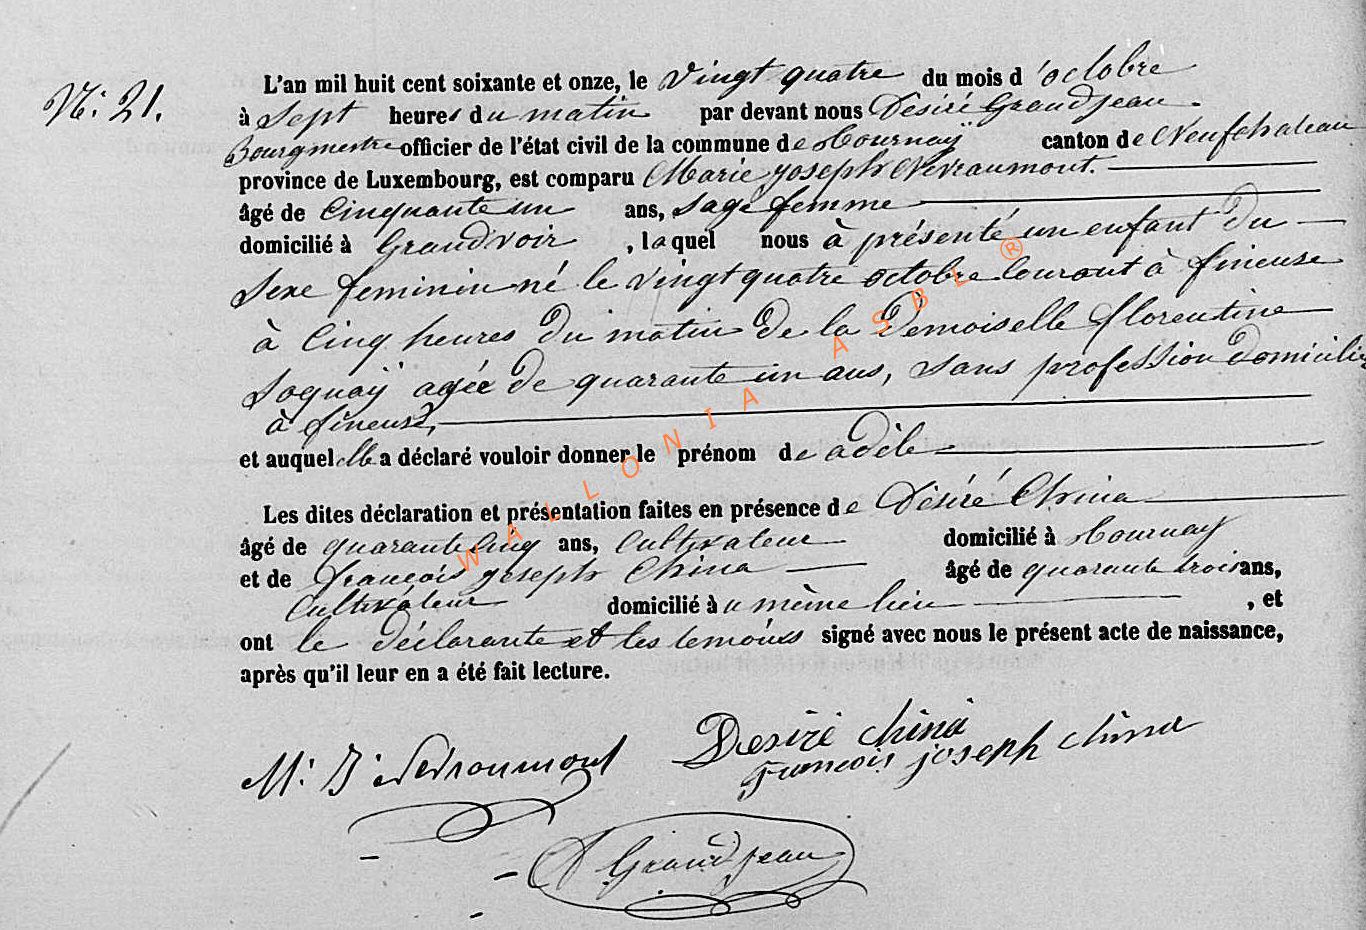 N: 21.
L'an mil huit cent soixante et onze, le vingt quatre du mois d'octobre
à sept heures du matin par devant nous Désiré Grandjean
Bourgmestre officier de l'état civil de la commune de Tournaÿ canton de Neufchateau
province de Luxembourg, est comparu Marie Joseph Nevraumont.
âgé de Cinquante un ans, sage femme
domicilié à Grandvoir, laquel nous à présenté un enfant du
sexe feminin né le vingt quatre octobre courant à fineuse
à cinq heures du matin de la Demoiselle florentine
Soquaÿ agée de quarante un ans, sans profession domicilié
à fineuse,
et auquel elle a déclaré vouloir donner le prénom de adèle
Les dites déclaration et présentation faites en présence de Désiré China
âgé de quarante cinq ans, Cultivateur domicilié à Tournay
et de françois joseph China âgé de quarante trois ans,
Cultivateur domicilié au même lieu, et
ont le déclarante et les temoins signé avec nous le présent acte de naissance,
après qu'il leur en a été fait lecture.
M: J: Nevraumont Desiré china
francois joseph china
D Grandjean
WALLONIA ASBL ®